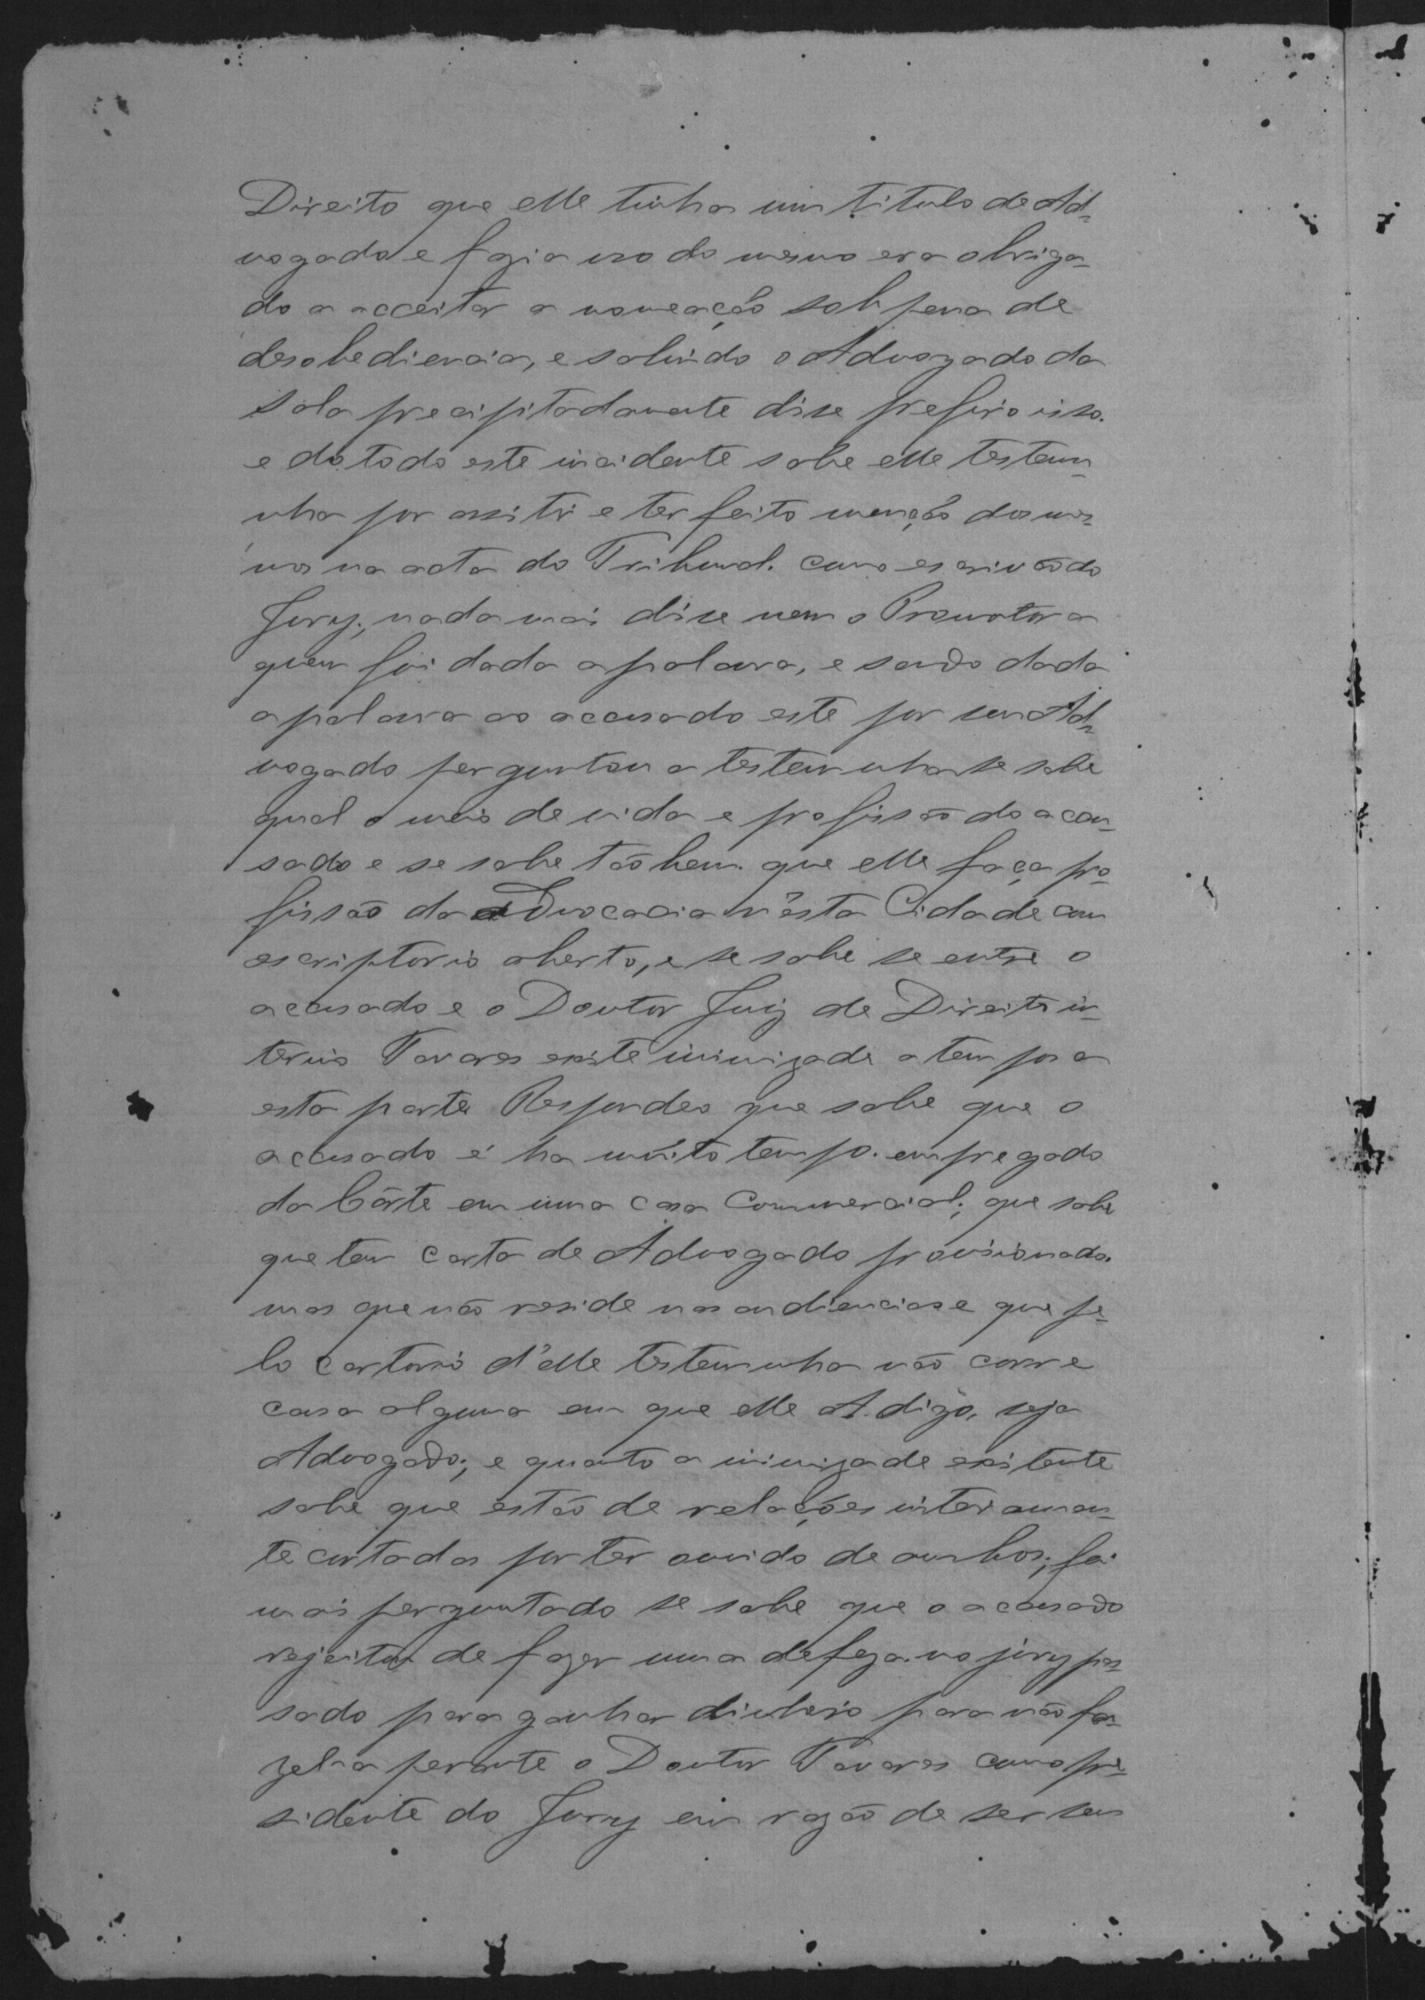 Direito que elle tinha um titulo de Ad-
vogado e fazia uso do mesmo era obriga-
do a acceitar a nomeação sob pena de
desobediencia, e sahindo o Advogado da
sala precipitadamente disse prefiro isso.
e do todo este incidente sabe elle testem-
nha por assitir e ter feito menção dos mes-
mos na acta do Tribunal. como escrivão do
Jury; nada mais disse nem o Promotor a
quem foi dada a palavra, e sendo dada
a palavra ao accusado este por seu Ad-
vogado perguntou a testemunha se sabe
qual o meio de vida e profissão do accu-
sado e se sabe tão bem. que elle faça pro-
fissão da advocacia n'esta Cidade com
escriptorio aberto, e se sabe se entre o
accusado e o Doutor Juiz de Direito in-
terino Tavares existe inimizade a tempos a
esta parte Respondeo que sabe que o
accusado é ha muito tempo. empregado
da Côrte em uma casa Commercial; que sabe
que tem carta de Advogado provisionado.
mas que não reside nas audiencias e que pe-
lo cartorio d'elle testemunha não corre
causa alguma em que elle A. digo, seja
Advogado; e quanto a inimizade existente
sabe que estão de relações inteiramen-
te cortadas por ter ouvido de ambos; foi
mais perguntado se sabe que o accusado
rejeitou de fazer uma defeza. no jury pas-
sado para ganhar dinheiro para não fa-
zel-a perante o Doutor Tavares como pre-
sidente do Jury em razão de ser seu